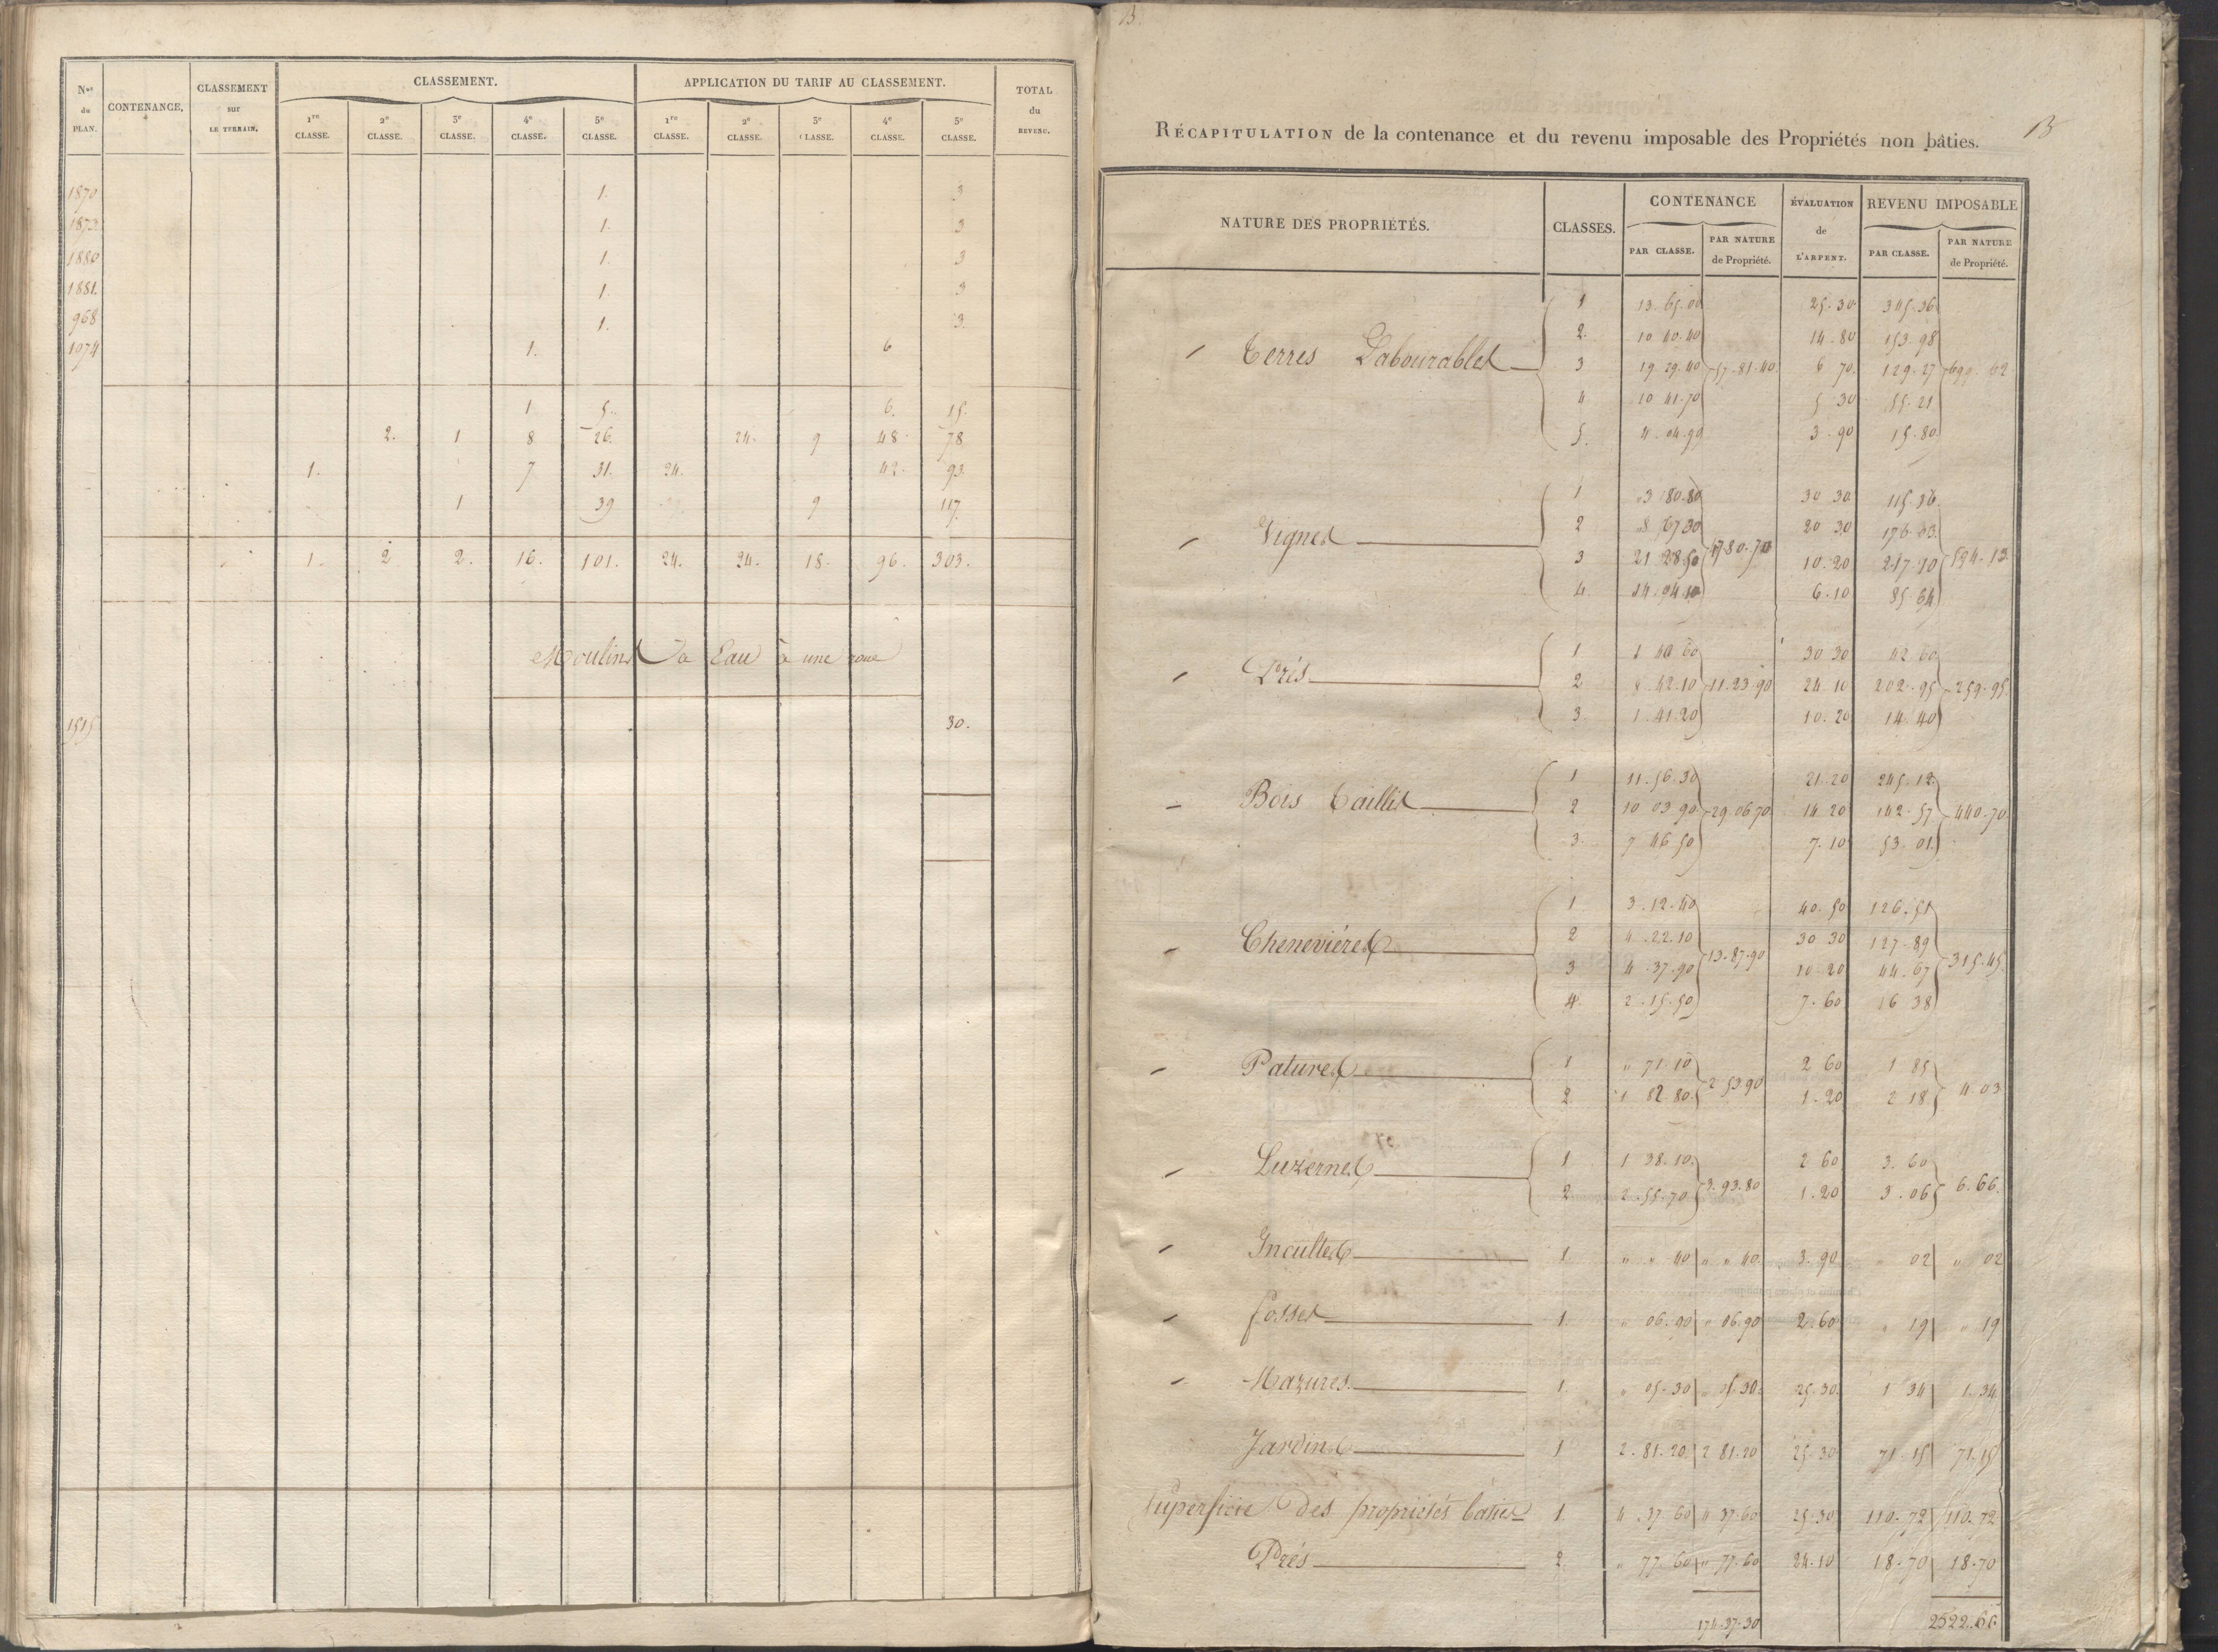 Nos du PLAN. CONTENANCE. CLASSEMENT sur LE TERRAIN. CLASSEMENT. APPLICATION DU TARIF AU CLASSEMENT. TOTAL du REVENU.
1re CLASSE. 2e CLASSE. 3e CLASSE. 4e CLASSE. 5e CLASSE. 1re CLASSE. 2e CLASSE. 3e CLASSE. 4e CLASSE. 5e CLASSE.
1870 1. 3
1873 1. 3
1880 1. 3
1881. 1. 3
968 1. 3.
1074 1. 6
1 5. 6. 15.
2. 1 8 26. 24. 9 48. 78
1. 7 31. 24. 42. 93.
1 39 9 117.
1. 2 2. 16. 101. 24. 24. 18. 96. 303.
Moulins à Eau à une roue
1515 30.
B.
RÉCAPITULATION de la contenance et du revenu imposable des Propriétés non bâties.
B
NATURE DES PROPRIÉTÉS. CLASSES. CONTENANCE ÉVALUATION de L'ARPENT. REVENU IMPOSABLE
PAR CLASSE. PAR NATURE de Propriété. PAR CLASSE. PAR NATURE de Propriété.
1 13.65.00 25.30 345.36
2. 10 40.40 14.80 153.98
Terres Labourables 3 19 29.40 57.81.40. 6 70. 129.27 699.62
4 10 41.70 5 30 55.21
5. 4.04.90 3.90 15.80.
1 3 80.80 30 30 115.36
2 8 67 30 20 30 176.03.
Vignes 3 21 28.50 47 80.70 10.20 217.10 594.13
4. 14.04.10 6.10 85 64
1 1 40 60 30 30 42 60
Prés 2 8.42.10 11.23.90 24 10 202.95 259.95.
3. 1.41.20 10.20 14.40
1 11.56.30 21.20 245.12.
Bois Taillis 2 10 03.90 29.06 70 14 20 142.57 440.70
3. 7 46 50 7.10 53.01.
1 3.12.40 40.50 126.51
Chenevières 2 4.22.10 13.87.90 30 30 127.89 315.45.
3 4.37.90 10.20 44.67
4. 2.15.50 7.60 16 38
Patures 1 " 71 10 2 53 90 2 60 1 85 4.03
2 1 82 80. 1.20 2 18
Luzernes 1 1 38.10. 3.93.80 2 60 3.60 6.66.
2 2.55.70 1.20 3.06
Incultes 1. " " 40 " " 40. 3.90 " 02 " 02
fosses 1. " 06.90 " 06.90 2.60 " 19 " 19
Mazures 1. " 05.30 " 05.30. 25.30. 1 34 1.34
Jardins 1 2.81.20. 2 81.20 25.30 71.15 71.15
Superficie des propriétés baties 1. 4.37 60 4 37.60 25.30 110.72 110.72
Prés 2. " 77.60 " 77.60 24.10 18.70 18.70
174.37.30 2522.66